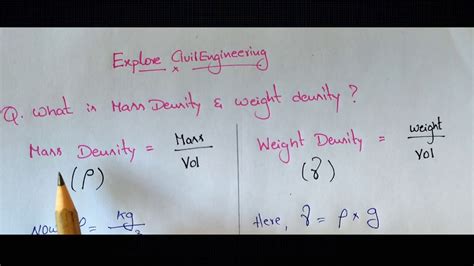 Explore Civil Engineering
Q. What is Mass Density & weight density ?
Mass Density = Mass / Vol
(ρ)
Now ρ = kg
Weight Density = weight / Vol
(γ)
Here, γ = ρ × g